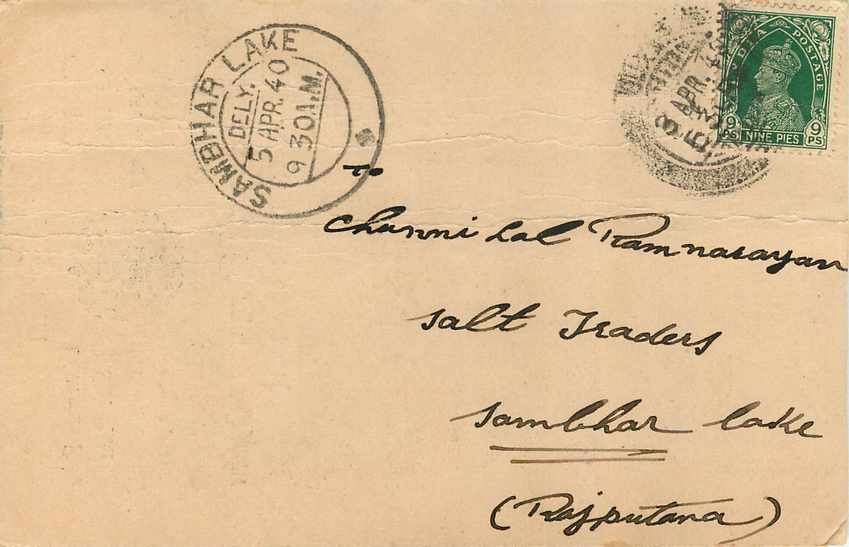 SAMBHAR LAKE
DELY.
5 APR. 40
9 30 A.M.
INDIA POSTAGE
3 APR. 40
9 PS
NINE PIES
9 PS
to
Chunni Lal Ramnarayan
Salt Traders
Sambhar Lake
(Rajputana)